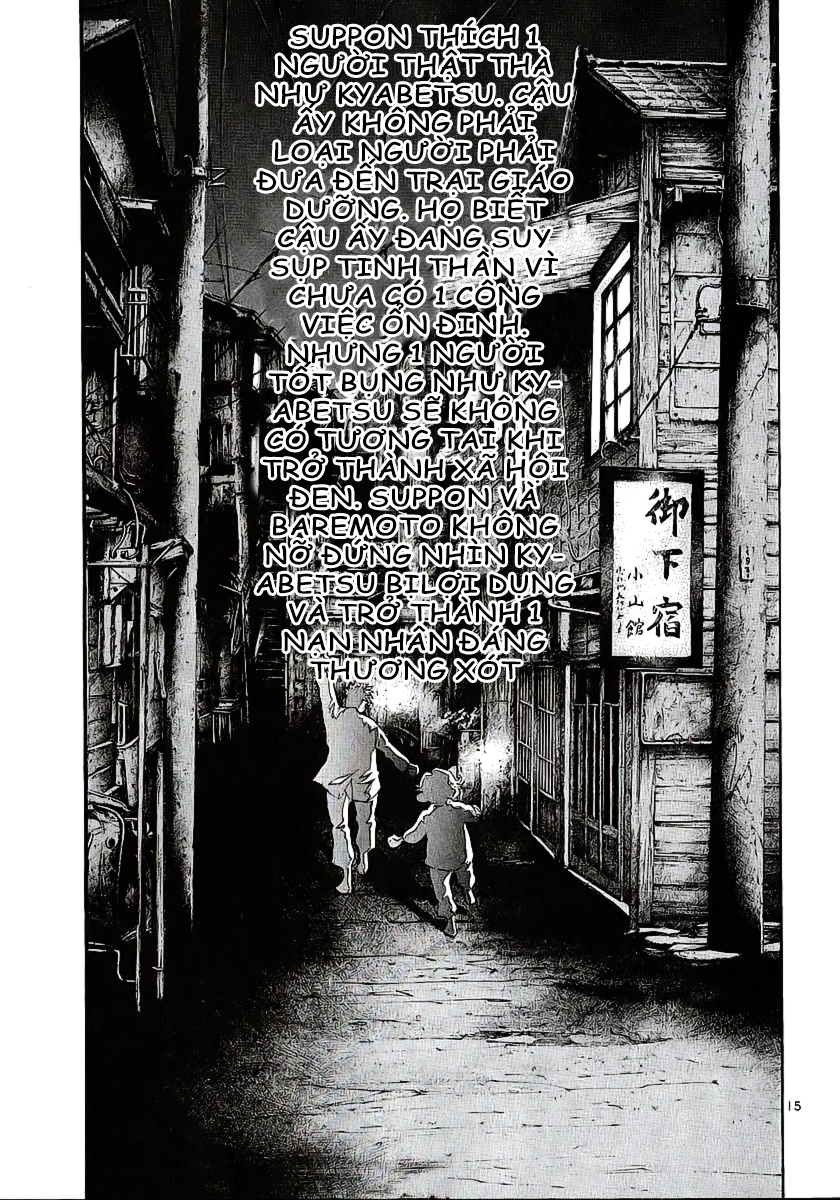 SUPPON THÍCH 1
NGƯỜI THẬT THÀ
NHƯ KYABETSU. CẬU
ẤY KHÔNG PHẢI
LOẠI NGƯỜI PHẢI
ĐƯA ĐẾN TRẠI GIÁO
DƯỠNG. HỌ BIẾT
CẬU ẤY ĐANG SUY
SỤP TINH THẦN VÌ
CHƯA CÓ 1 CÔNG
VIỆC ỔN ĐỊNH.
NHƯNG 1 NGƯỜI
TỐT BỤNG NHƯ KY-
ABETSU SẼ KHÔNG
CÓ TƯƠNG TAI KHI
TRỞ THÀNH XÃ HỘI
ĐEN. SUPPON VÀ
BAREMOTO KHÔNG
NỠ ĐỨNG NHÌN KY-
ABETSU BỊ LỢI DỤNG
VÀ TRỞ THÀNH 1
NẠN NHÂN ĐÁNG
THƯƠNG XÓT
御下宿
小山館
15